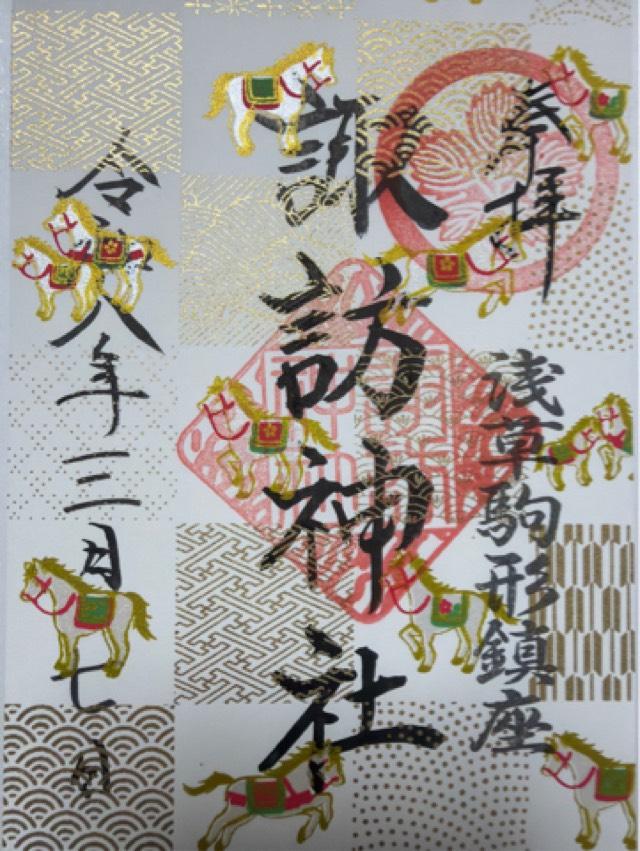 奉拝
浅草駒形鎮座
諏訪神社
令和八年三月七日